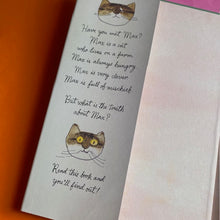 Have you met Max?
Max is a cat
who lives on a farm
Max is always hungry
Max is very clever
Max is full of mischief
But what is the truth
about Max?
Read this book and
you'll find out!